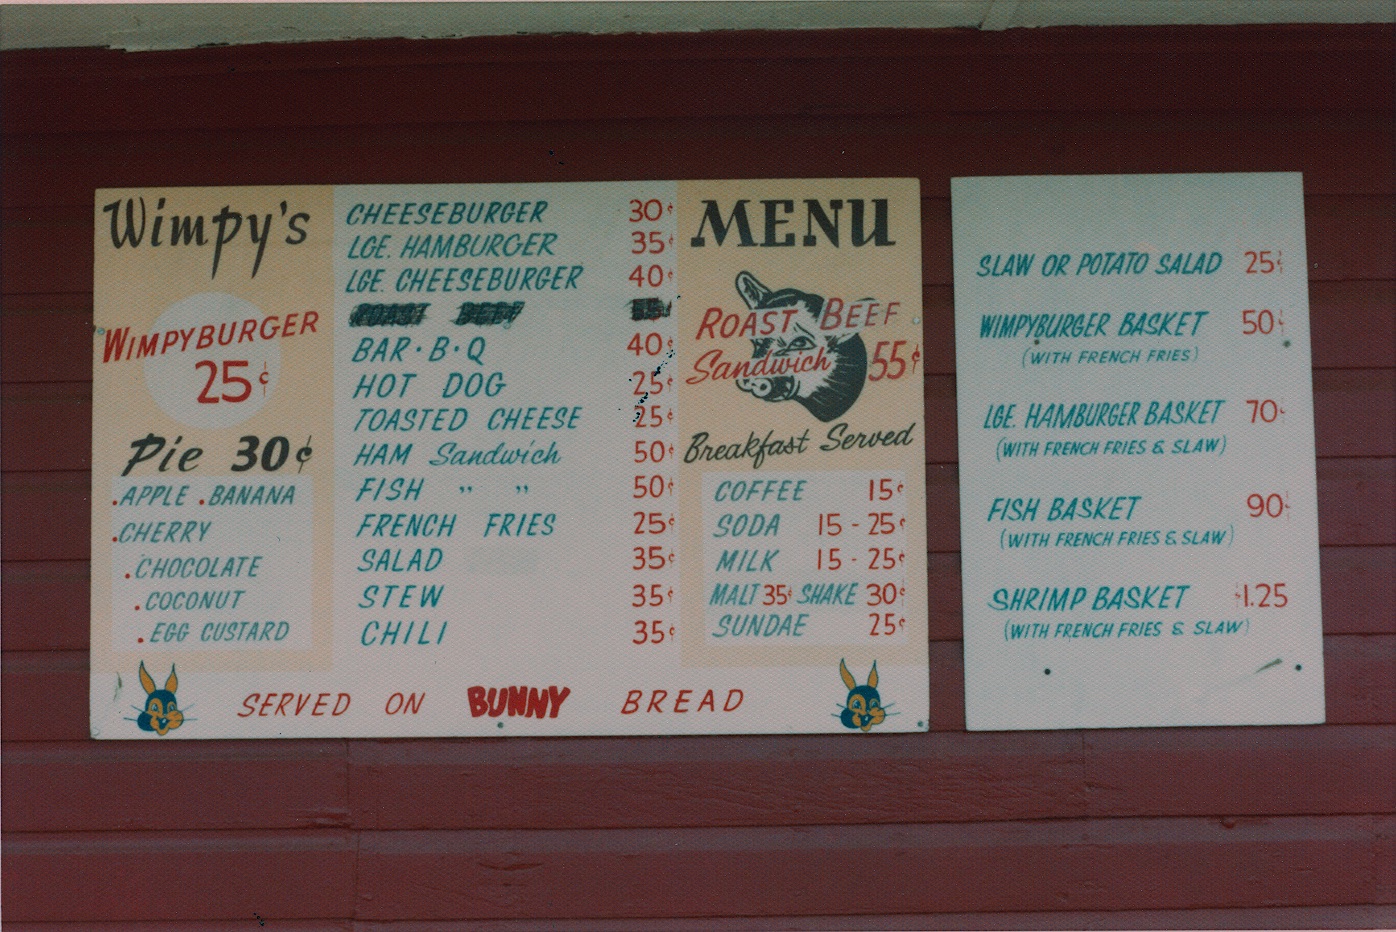 Wimpy's
WIMPYBURGER
25¢
Pie 30¢
.APPLE .BANANA
.CHERRY
.CHOCOLATE
.COCONUT
.EGG CUSTARD
CHEESEBURGER 30¢
LGE. HAMBURGER 35¢
LGE. CHEESEBURGER 40¢
ROAST BEEF
BAR·B·Q 40¢
HOT DOG 25¢
TOASTED CHEESE 25¢
HAM Sandwich 50¢
FISH " " 50¢
FRENCH FRIES 25¢
SALAD 35¢
STEW 35¢
CHILI 35¢
MENU
ROAST BEEF
Sandwich 55¢
Breakfast Served
COFFEE 15¢
SODA 15 - 25¢
MILK 15 - 25¢
MALT 35¢ SHAKE 30¢
SUNDAE 25¢
SERVED ON BUNNY BREAD
SLAW OR POTATO SALAD 25¢
WIMPYBURGER BASKET 50¢
(WITH FRENCH FRIES)
LGE. HAMBURGER BASKET 70¢
(WITH FRENCH FRIES & SLAW)
FISH BASKET 90¢
(WITH FRENCH FRIES & SLAW)
SHRIMP BASKET $1.25
(WITH FRENCH FRIES & SLAW)